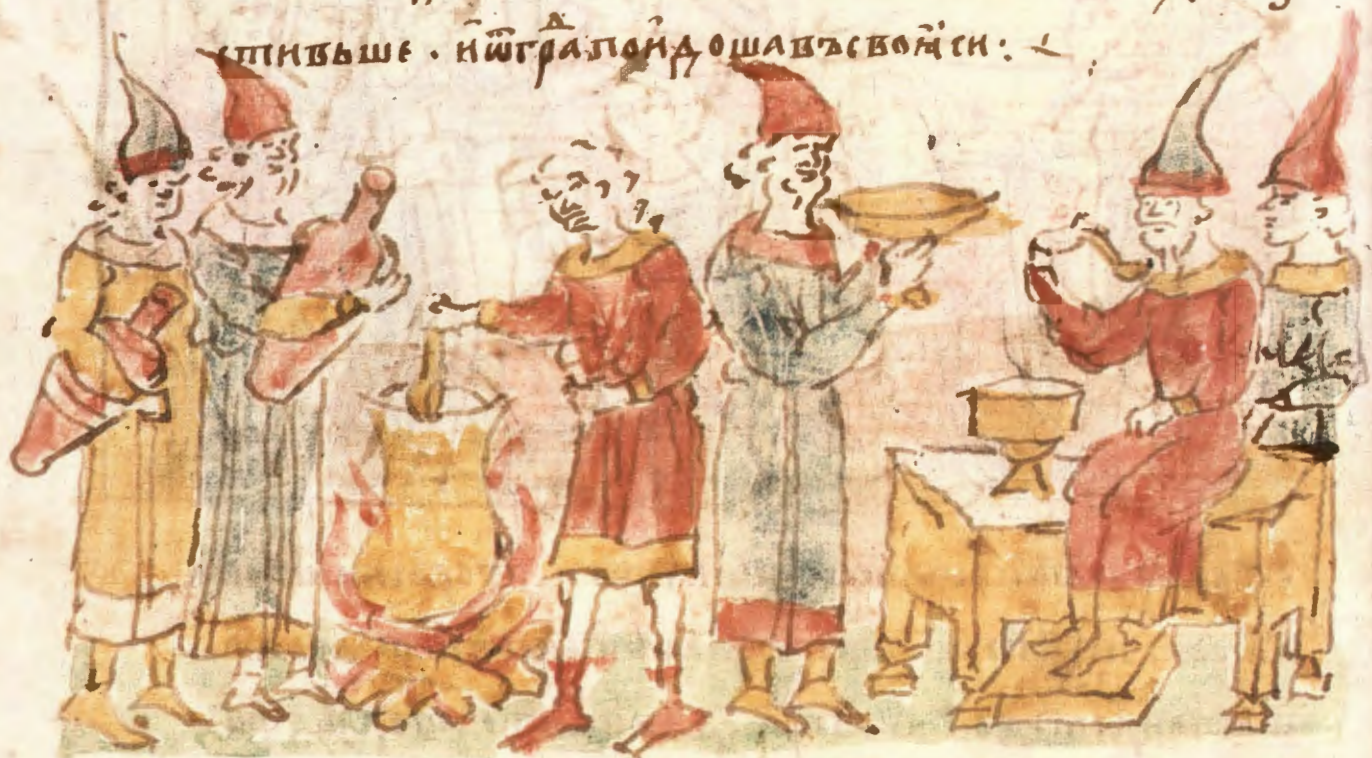 стивъше · и ѿ гра́д поидоша въсвоӕси :·